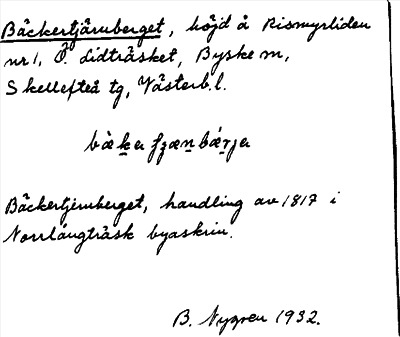 Bäckertjärnberget, höjd å Rismyrliden
nr 1, Ö. Lidträsket, Byske sn,
Skellefteå tg, Västerb. l.
Bäckertjernberget, handling av 1817 i
Norrlångträsk byaskrin.
B. Nygren 1932.